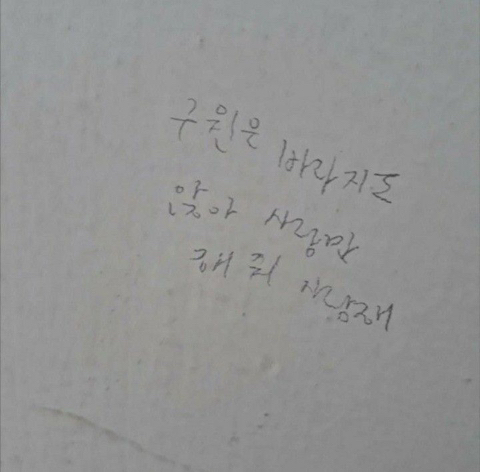 구원은 바라지도
않아 사랑만
해줘 사랑해